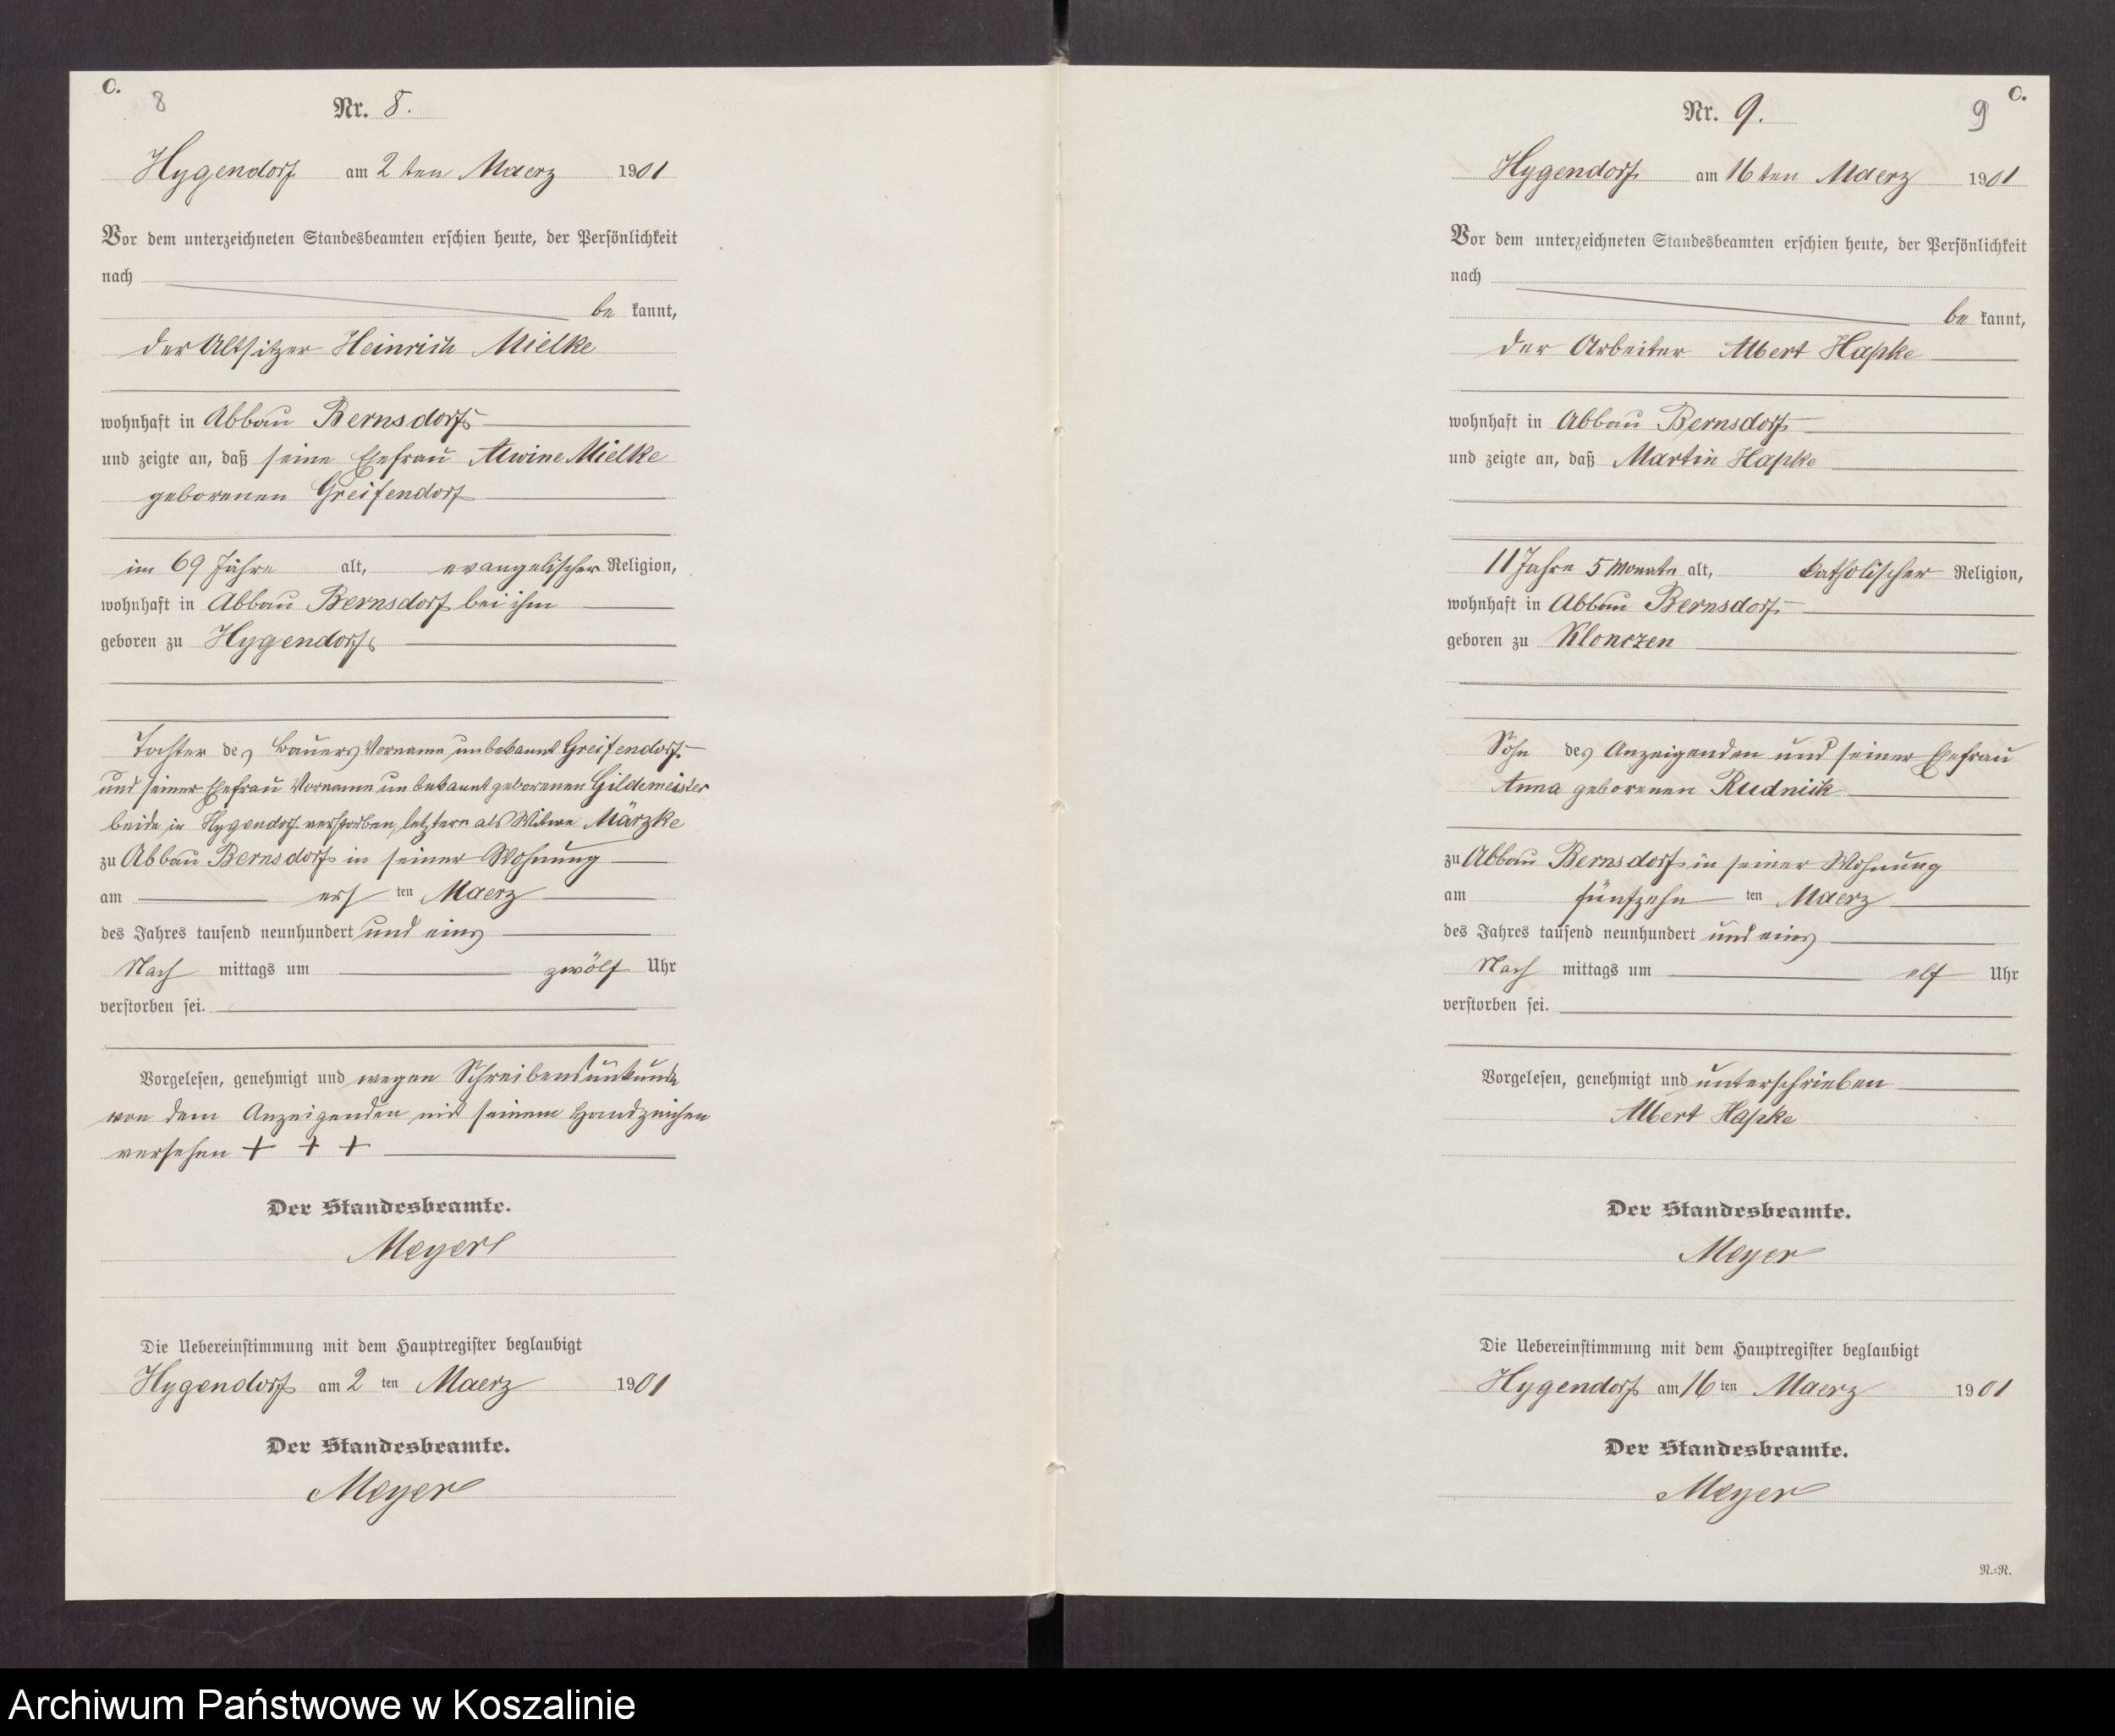 C.
8
Nr. 8.
Hygendorf am 2 ten Maerz 1901
Vor dem unterzeichneten Standesbeamten erschien heute, der Persönlichkeit
nach
be kannt,
der Altsitzer Heinrich Mielke
wohnhaft in Abbau Bernsdorf
und zeigte an, daß seine Ehefrau Alwine Mielke
geborenen Greifendorf
im 69 Jahre alt, evangelischer Religion,
wohnhaft in Abbau Bernsdorf bei ihm
geboren zu Hygendorf
Tochter des Bauers Vorname unbekannt Greifendorf
und seiner Ehefrau Vorname unbekannt geborenen Gildemeister
beide in Hygendorf verstorben, letztere als Witwe Märzke
zu Abbau Bernsdorf in seiner Wohnung
am ers ten Maerz
des Jahres tausend neunhundert und eins
Nach mittags um zwölf Uhr
verstorben sei.
Vorgelesen, genehmigt und wegen Schreibensunkunde
von dem Anzeigenden mit seinem Handzeichen
versehen + + +
Der Standesbeamte.
Meyer
Die Uebereinstimmung mit dem Hauptregister beglaubigt
Hygendorf am 2 ten Maerz 1901
Der Standesbeamte.
Meyer
C.
9
Nr. 9.
Hygendorf am 16 ten Maerz 1901
Vor dem unterzeichneten Standesbeamten erschien heute, der Persönlichkeit
nach
be kannt,
der Arbeiter Albert Hapke
wohnhaft in Abbau Bernsdorf
und zeigte an, daß Martin Hapke
11 Jahre 5 Monate alt, katholischer Religion,
wohnhaft in Abbau Bernsdorf
geboren zu Klonczen
Sohn des Anzeigenden und seiner Ehefrau
Anna geborenen Rudnick
zu Abbau Bernsdorf in seiner Wohnung
am fünfzehn ten Maerz
des Jahres tausend neunhundert und eins
Nach mittags um elf Uhr
verstorben sei.
Vorgelesen, genehmigt und unterschrieben
Albert Hapke
Der Standesbeamte.
Meyer
Die Uebereinstimmung mit dem Hauptregister beglaubigt
Hygendorf am 16 ten Maerz 1901
Der Standesbeamte.
Meyer
N.=N.
Archiwum Państwowe w Koszalinie